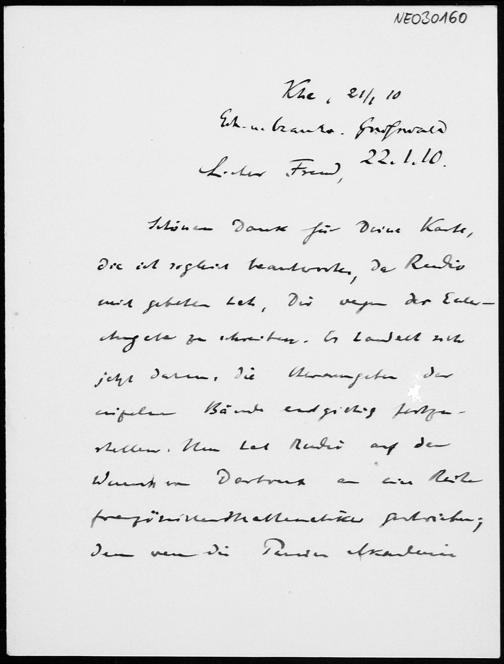 NE030160
Khe, 21/1 10
Erh. u. beantw. Greifswald
22.1.10.
Lieber Freund,
Schönen Dank für Deine Karte,
die ich sogleich beantworte, da Rudio
mich gebeten hat, Dir wegen der Euler-
Angele zu schreiben. Es handelt sich
jetzt darum, die Herausgeber der
einzelnen Bände endgiltig festzu-
stellen. Nun hat Rudio auf den
Wunsch von Darboux an eine Reihe
französischer Mathematiker geschrieben,
denn wenn die Pariser Akademie